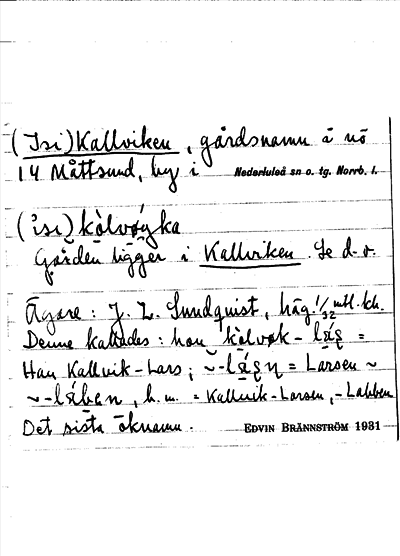 (Isi)Kallviken, gårdsnamn å nö
14 Måttsund, by i Nederluleå sn o. tg. Norrb. l.
Gården ligger i Kallviken. Se d.o.
Ägare: J. L. Sundquist, häg. 1/32 mtl. kh.
Denne kallades: han kòlvøk- lɑ́ş =
Han Kallvik-Lars; ~-lɑ́şņ = Larsen ~
~-lɑ́ben, b.m. = Kallvik-Larsen, -Labben
Det sista öknamn. EDVIN BRÄNNSTRÖM 1931